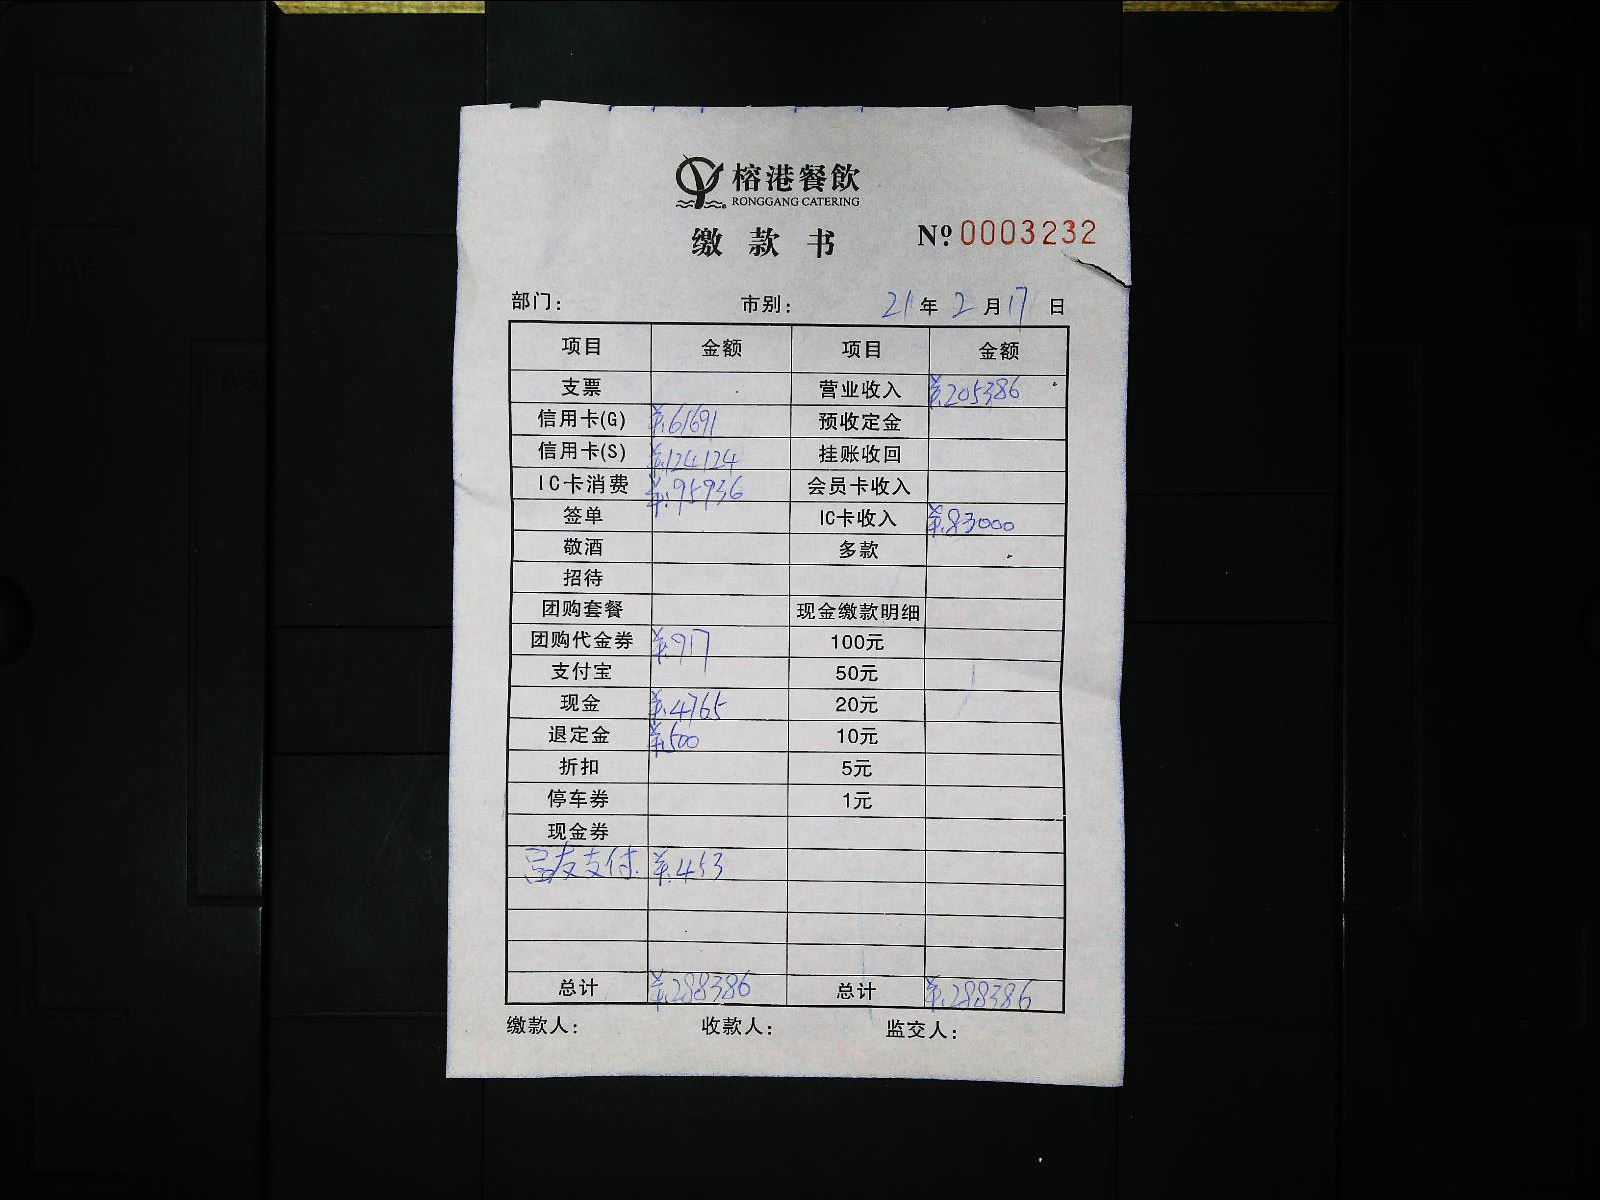 榕港餐飲
RONGGANG CATERING
缴款书 Nº 0003232
部门： 市别： 21年2月17日
项目 金额 项目 金额
支票 营业收入 ¥205386
信用卡(G) ¥61691 预收定金
信用卡(S) ¥124124 挂账收回
IC卡消费 ¥95936 会员卡收入
签单 IC卡收入 ¥83000
敬酒 多款
招待
团购套餐 现金缴款明细
团购代金券 ¥917 100元
支付宝 50元
现金 ¥4765 20元
退定金 ¥500 10元
折扣 5元
停车券 1元
现金券
富友支付 ¥453
总计 ¥288386 总计 ¥288386
缴款人： 收款人： 监交人：